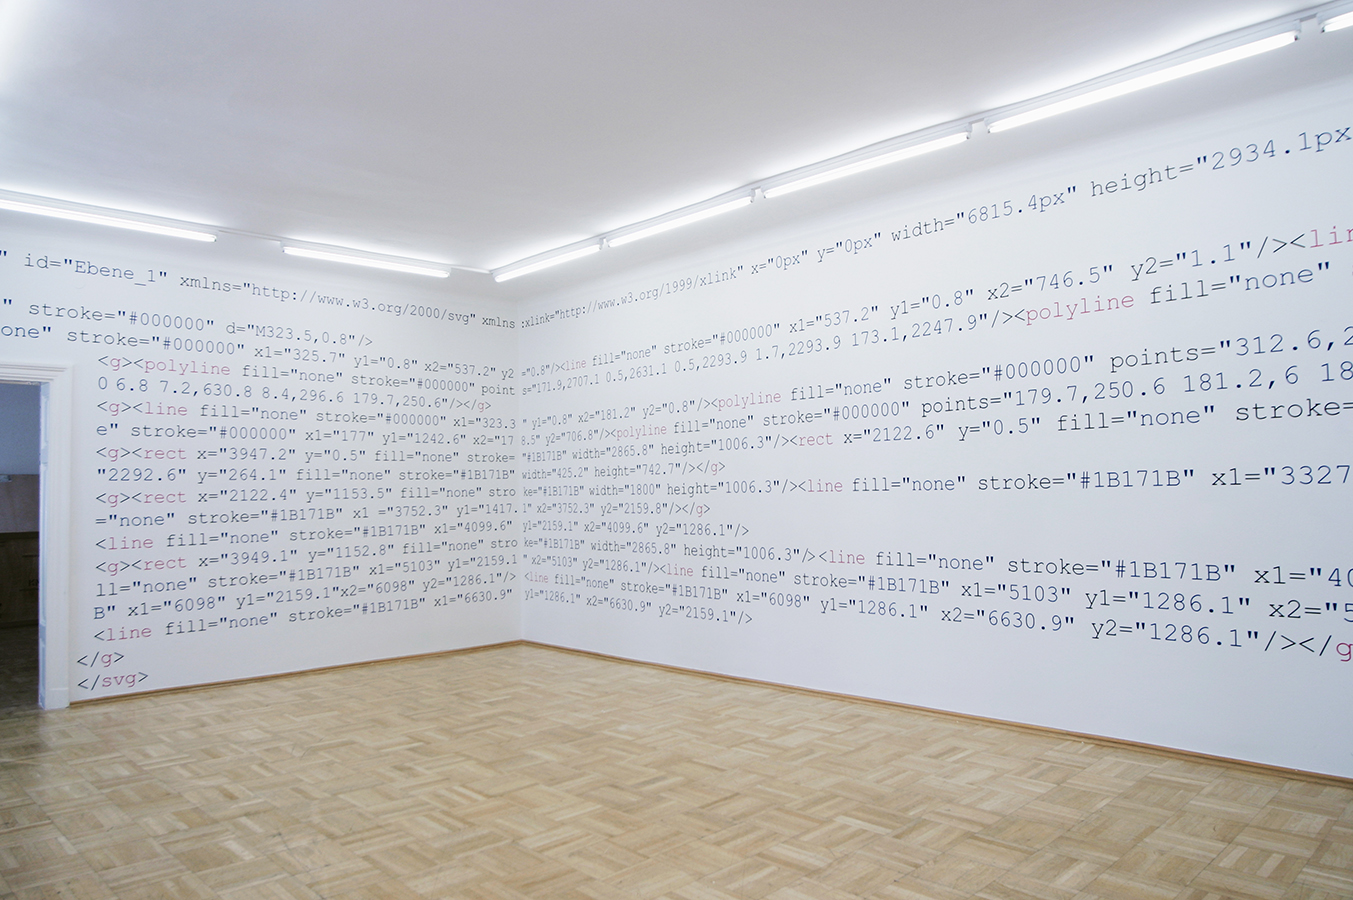 " id="Ebene_1" xmlns="http://www.w3.org/2000/svg" xmlns:xlink="http://www.w3.org/1999/xlink" x="0px" y="0px" width="6815.4px" height="2934.1px
" stroke="#000000" d="M323.5,0.8"/>
one" stroke="#000000" x1="325.7" y1="0.8" x2="537.2" y2="0.8"/><line fill="none" stroke="#000000" x1="537.2" y1="0.8" x2="746.5" y2="1.1"/><lin
<g><polyline fill="none" stroke="#000000" points="171.9,2707.1 0.5,2631.1 0.5,2293.9 1.7,2293.9 173.1,2247.9"/><polyline fill="none"
0 6.8 7.2,630.8 8.4,296.6 179.7,250.6"/></g>
<g><line fill="none" stroke="#000000" x1="323.3" y1="0.8" x2="181.2" y2="0.8"/><polyline fill="none" stroke="#000000" points="312.6,2
e" stroke="#000000" x1="177" y1="1242.6" x2="178.5" y2="706.8"/><polyline fill="none" stroke="#000000" points="179.7,250.6 181.2,6 18
<g><rect x="3947.2" y="0.5" fill="none" stroke="#1B171B" width="2865.8" height="1006.3"/><rect x="2122.6" y="0.5" fill="none" stroke=
"2292.6" y="264.1" fill="none" stroke="#1B171B" width="425.2" height="742.7"/></g>
<g><rect x="2122.4" y="1153.5" fill="none" stroke="#1B171B" width="1800" height="1006.3"/><line fill="none" stroke="#1B171B" x1="3327
="none" stroke="#1B171B" x1 ="3752.3" y1="1417.1" x2="3752.3" y2="2159.8"/></g>
<line fill="none" stroke="#1B171B" x1="4099.6" y1="2159.1" x2="4099.6" y2="1286.1"/>
<g><rect x="3949.1" y="1152.8" fill="none" stroke="#1B171B" width="2865.8" height="1006.3"/><line fill="none" stroke="#1B171B" x1="40
ll="none" stroke="#1B171B" x1="5103" y1="2159.1" x2="5103" y2="1286.1"/><line fill="none" stroke="#1B171B" x1="5103" y1="1286.1" x2="5
B" x1="6098" y1="2159.1"x2="6098" y2="1286.1"/><line fill="none" stroke="#1B171B" x1="6098" y1="1286.1" x2="6630.9" y2="1286.1"/></g
<line fill="none" stroke="#1B171B" x1="6630.9" y1="1286.1" x2="6630.9" y2="2159.1"/>
</g>
</svg>